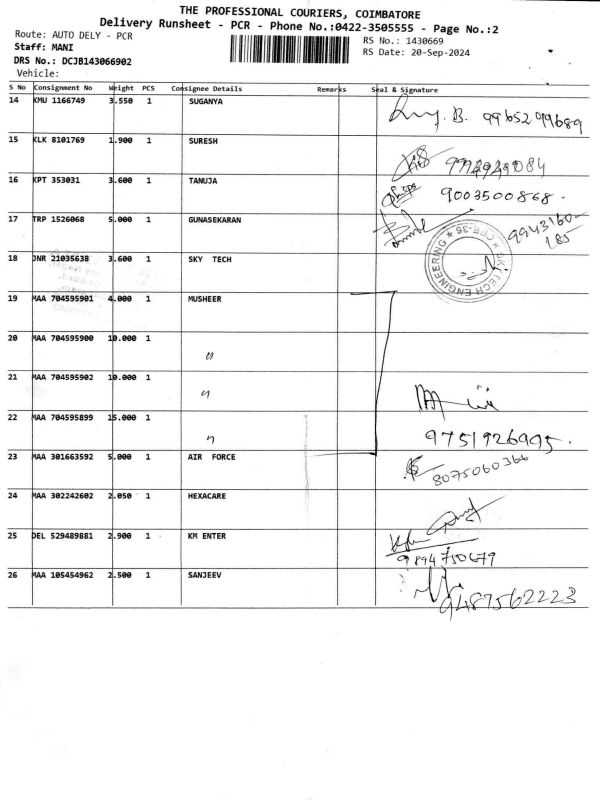 THE PROFESSIONAL COURIERS, COIMBATORE
Delivery Runsheet - PCR - Phone No.:0422-3505555 - Page No.:2
Route: AUTO DELY - PCR
RS No.: 1430669
Staff: MANI
RS Date: 20-Sep-2024
DRS No.: DCJB143066902
Vehicle:
S No Consignment No Weight PCS Consignee Details Remarks Seal & Signature
14 KMU 1166749 3.550 1 SUGANYA
B. 9965299689
15 KLK 8101769 1.900 1 SURESH
16 KPT 353031 3.600 1 TANUJA
9003500868.
17 TRP 1526068 5.000 1 GUNASEKARAN
9943160-
185
18 JNR 21035638 3.600 1 SKY TECH
SKY TECH ENGINEERING ★ CBE-36 ★
19 MAA 704595901 4.000 1 MUSHEER
20 MAA 704595900 10.000 1 "
21 MAA 704595902 10.000 1 "
22 MAA 704595899 15.000 1 "
9751926995.
23 MAA 301663592 5.000 1 AIR FORCE
8075060366
24 MAA 302242602 2.050 1 HEXACARE
25 DEL 529489881 2.900 1 KM ENTER
9894750679
26 MAA 105454962 2.500 1 SANJEEV
9487562223